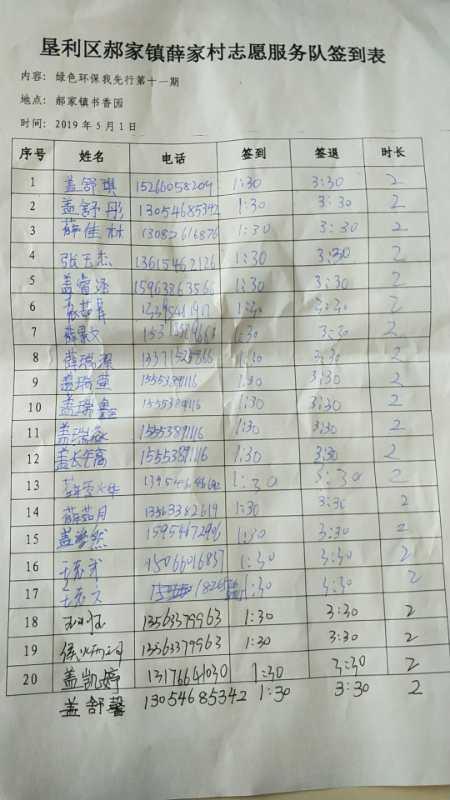 垦利区郝家镇薛家村志愿服务队签到表
内容: 绿色环保我先行第十一期
地点: 郝家镇书香园
时间: 2019年5月1日
序号 姓名 电话 签到 签退 时长
1 盖舒琪 15266058204 1:30 3:30 2
2 盖舒彤 13054685342 1:30 3:30 2
3 薛佳林 13082616876 1:30 3:30 2
4 张玉杰 13615462126 1:30 3:30 2
5 盖睿涵 15963863566 1:30 3:30 2
6 1:30 3:30 2
7 薛景文 1:30 3:30 2
8 薛瑞潔 1:30 3:30 2
9 盖瑞英 15553891116 1:30 3:30 2
10 盖瑞鑫 15553891116 1:30 3:30 2
11 盖瑞焱 15553891116 1:30 3:30 2
12 盖长高 15553891116 1:30 3:30 2
13 1:30 3:30 2
14 薛茹月 13563382619 1:30 3:30 2
15 盖梦然 15954672906 1:30 3:30 2
16 15066016837 1:30 3:30 2
17 1:30 3:30 2
18 13563379963 1:30 3:30 2
19 13563379963 1:30 3:30 2
20 盖凯婷 13176641030 1:30 3:30 2
盖舒馨 13054685342 1:30 3:30 2